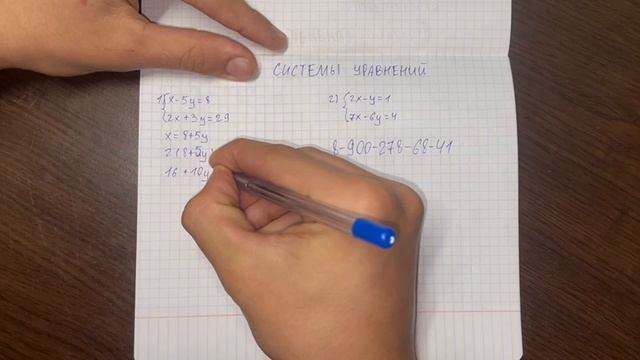 СИСТЕМЫ УРАВНЕНИЙ
1) {x-5y=8
{2x+3y=29
x=8+5y
2(8+5y)
16+10y
2) {2x-y=1
{7x-6y=4
8-900-278-68-41